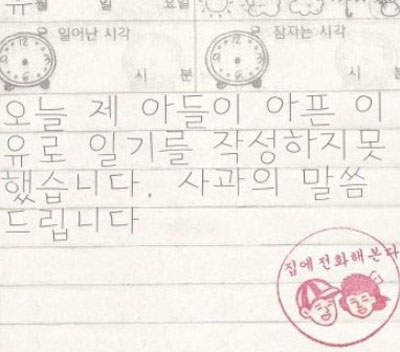 월 일 요일
일어난 시각 잠자는 시각
시 분 시 분
오늘 제 아들이 아픈 이
유로 일기를 작성하지못
했습니다. 사과의 말씀
드립니다
집에전화해본다